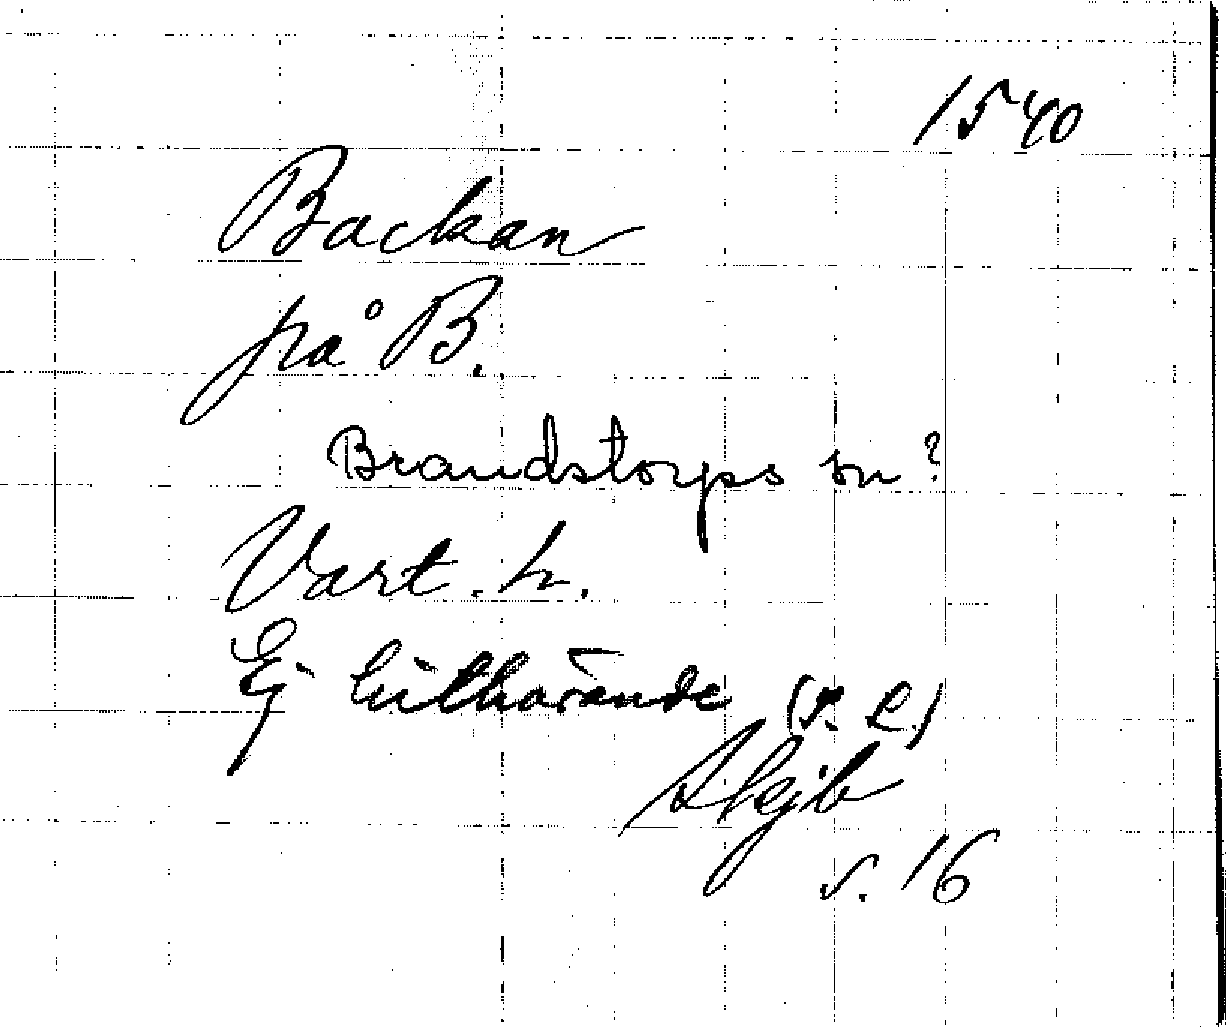 1540
Backan
på B.
Brandstorps sn?
Vart. h.
Ej hithörande (S. L.)
Skgjb
s. 16